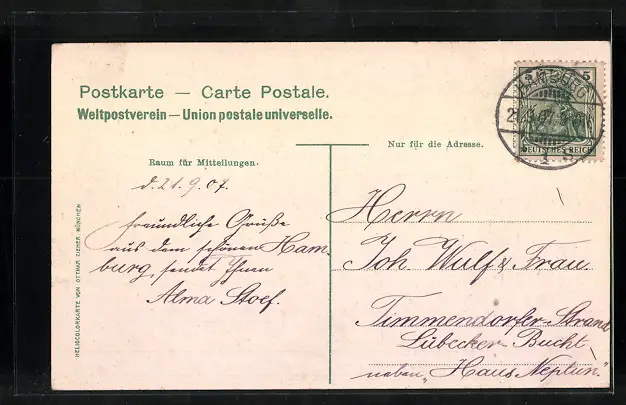 Postkarte — Carte Postale.
Weltpostverein — Union postale universelle.
Nur für die Adresse.
Raum für Mitteilungen.
d. 21.9.07.
freundliche Grüße
aus dem schönen Ham-
burg, sendet Ihnen
Alma Stoef.
HELIOCOLORKARTE VON OTTMAR ZIEHER, MÜNCHEN
5
HAMBURG
DEUTSCHES REICH
1
Herrn
Joh Wulf & Frau
Timmendorfer-Strand
Lübecker-Bucht
neben „Haus Neptun"